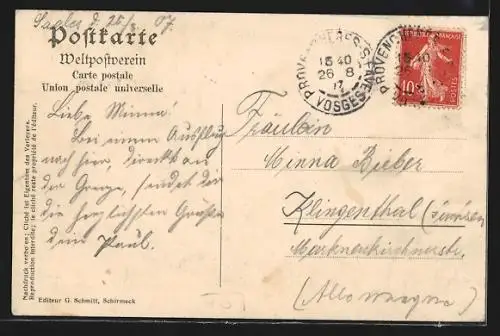 Saales d. 25/8 07.
Postkarte
Weltpostverein
Carte postale
Union postale universelle
Liebe Minna!
Bei einem Ausflug
nach hier, direkt an
der Grenze, sendet dir
die herzlichsten Grüße
dein Paul.
Fräulein
Minna Bieber
Klingenthal
Markneukirchnerstr.
(Allemagne)
PROVENCHERES-S-FAVE
15 40
26 8
VOSGES
10c
POSTES
Nachdruck verboten; Cliché ist Eigentum des Verlegers.
Reproduction interdite; le cliché reste propriété de l'éditeur.
Editeur G. Schmitt, Schirmeck